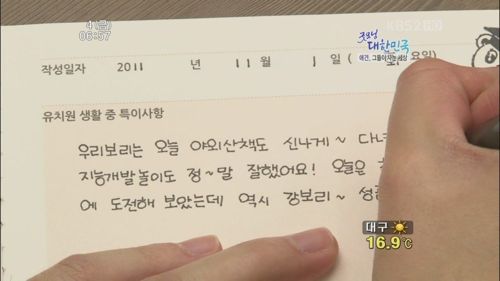 4(금)
06:57
KBS2 HD
굿모닝
대한민국
애견, 그들이 사는 세상
작성일자 2011 년 11월 1일 ( 요일)
유치원 생활 중 특이사항
우리보리는 오늘 야외산책도 신나게~ 다녀
지능개발놀이도 정~말 잘했어요! 오늘은
에 도전해 보았는데 역시 강보리~ 성공
대구
16.9℃